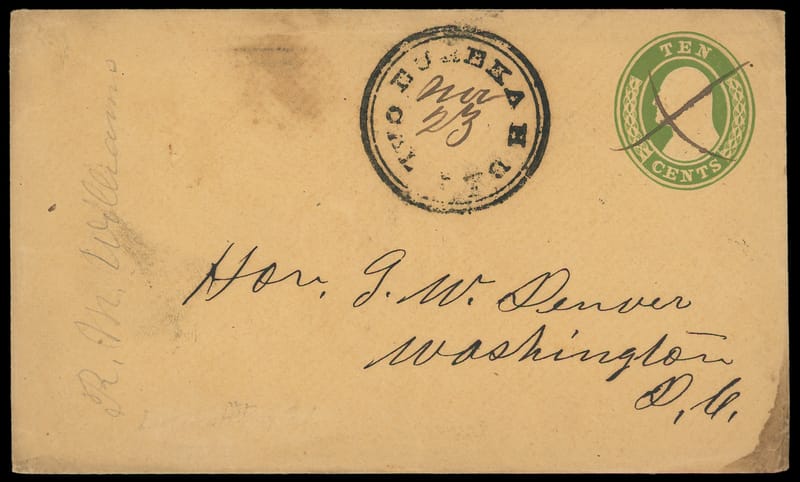 TEN
CENTS
EUREKA
Nov
23
R. M. Williams
Hon. J. W. Denver
Washington
D. C.